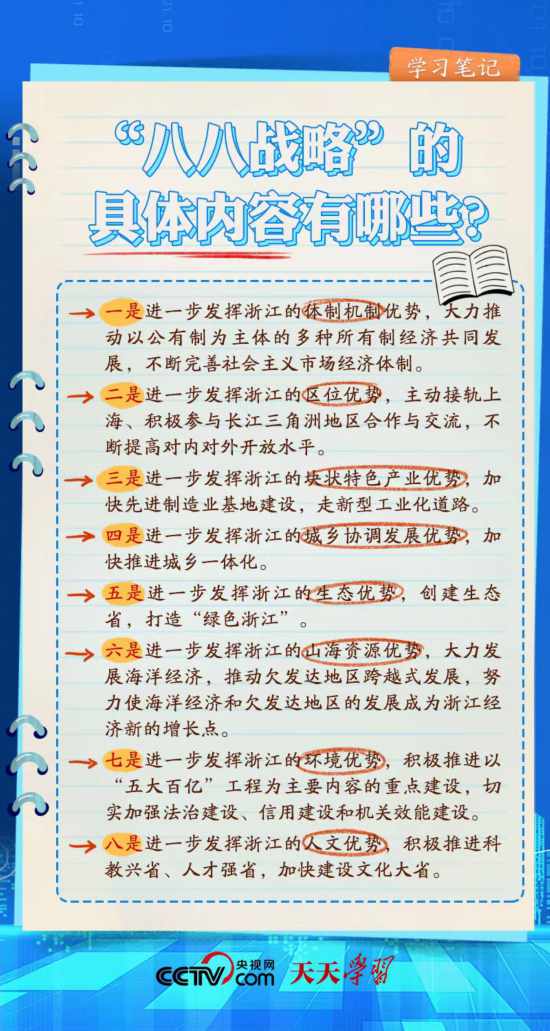 学习笔记
“八八战略”的
具体内容有哪些?
一是进一步发挥浙江的体制机制优势，大力推
动以公有制为主体的多种所有制经济共同发
展，不断完善社会主义市场经济体制。
二是进一步发挥浙江的区位优势，主动接轨上
海、积极参与长江三角洲地区合作与交流，不
断提高对内对外开放水平。
三是进一步发挥浙江的块状特色产业优势，加
快先进制造业基地建设，走新型工业化道路。
四是进一步发挥浙江的城乡协调发展优势，加
快推进城乡一体化。
五是进一步发挥浙江的生态优势，创建生态
省，打造“绿色浙江”。
六是进一步发挥浙江的山海资源优势，大力发
展海洋经济，推动欠发达地区跨越式发展，努
力使海洋经济和欠发达地区的发展成为浙江经
济新的增长点。
七是进一步发挥浙江的环境优势，积极推进以
“五大百亿”工程为主要内容的重点建设，切
实加强法治建设、信用建设和机关效能建设。
八是进一步发挥浙江的人文优势，积极推进科
教兴省、人才强省，加快建设文化大省。
CCTV.com 央视网 天天学習